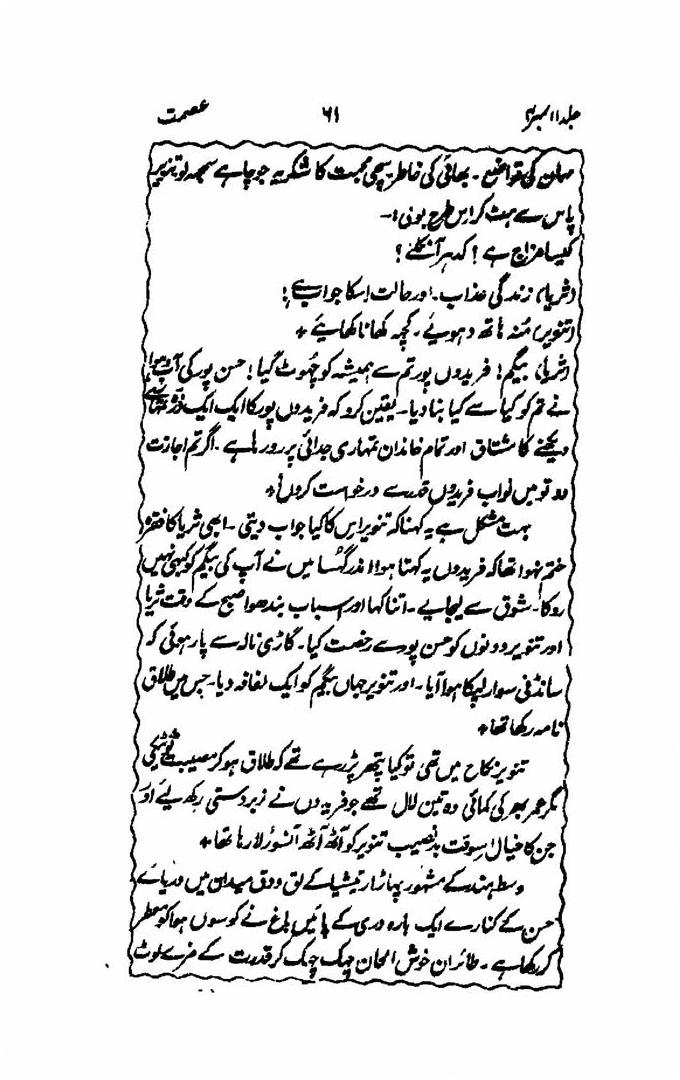 جلد ۱۱ نمبر ۶۱ عصمت
مہمان کی تواضع ۔ بھائی کی خاطر سچی محبت کا شکریہ جو چاہے سمجھ لو تنویر
پاس سے ہٹ کر اس طرح بولی :۔
کیسا مزاج ہے ؟ کدہر آ نکلے ؟
(ثریا) زندگی عذاب ۔ اور حالت اسکا جواب ہے !
(تنویر) مُنہ ہاتھ دہویئے ۔ کچھ کھانا کھایئے +
(ثریا) بیگم ! فریدوں پور تم سے ہمیشہ کو چُھوٹ گیا ! حسن پور کی آب و ہوا
نے تم کو کیا سے کیا بنا دیا ۔ یقین کرو کہ فریدوں پور کا ایک ایک ذرّہ تمہارے
دیکھنے کا مشتاق اور تمام خاندان تمہاری جدائی پر رو رہا ہے ۔ اگر تم اجازت
دو تو میں نواب فریدوں قدر سے درخواست کروں +
بہت مشکل ہے یہ کہنا کہ تنویر اس کا کیا جواب دیتی ۔ ابھی ثریا کا فقرہ
ختم نہوا تھا کہ فریدوں یہ کہتا ہوا اندر گُسا میں نے آپ کی بیگم کو کبھی نہیں
روکا ۔ شوق سے لیجایے ۔ اتنا کہا اور اسباب بندھوا صبح کے وقت ثریا
اور تنویر دونوں کو حسن پور سے رخصت کیا ۔ گاڑی نالہ سے پار ہوئی کہ
سانڈنی سوار لپکا ہوا آیا ۔ اور تنویر جہاں بیگم کو ایک لفافہ دیا ۔ جس میں طلاق
نامہ رکھا تھا +
تنویر نکاح میں تھی تو کیا پتھر پڑ رہے تھے کہ طلاق ہو کر مصیبت ٹوٹتی
مگر عمر بھر کی کمائی وہ تین لال تھے جو فریدوں نے زبردستی رکھ لیے اور
جن کا خیال اسوقت بدنصیب تنویر کو آٹھ آٹھ آنسو رلا رہا تھا +
وسط ہند کے مشہور پہاڑ ارتیشیا کے لق و دق میدان میں دریائے
حسن کے کنارے ایک بارہ دری کے پائیں باغ نے کوسوں ہوا کو معطر
کر رکھا ہے ۔ طائران خوش الحان چہک چہک کر قدرت کے مزے لوٹ